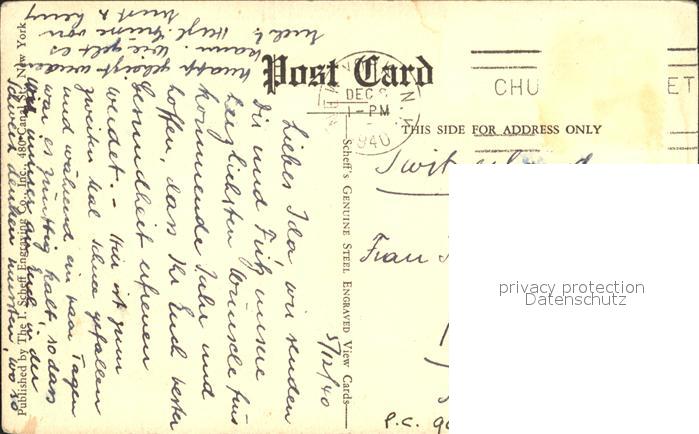 Post Card
NEW YORK, N.Y.
DEC 8
1-PM
1940
CHU
ET
THIS SIDE FOR ADDRESS ONLY
Frau
privacy protection
Datenschutz
P.C.
Scheff's GENUINE STEEL ENGRAVED View Cards
Published by The I. Scheff Engraving Co., Inc., 480 Canal St., New York
5/12/40
Liebes Ida wir senden
Dir und Fritz unsere
herzlichsten Wünsche fürs
kommende Jahr und
hoffen, dass Ihr Euch bester
Gesundheit erfreuen
werdet. - Hier ist zum
zweiten Mal Schnee gefallen
und während ein paar Tagen
war es zünftig kalt, so dass
wir immer an Euch in der
Schweiz denken mussten, wo so
knapp geheizt werden
kann. Wie geht es
Euch? Herzl. Grüsse von